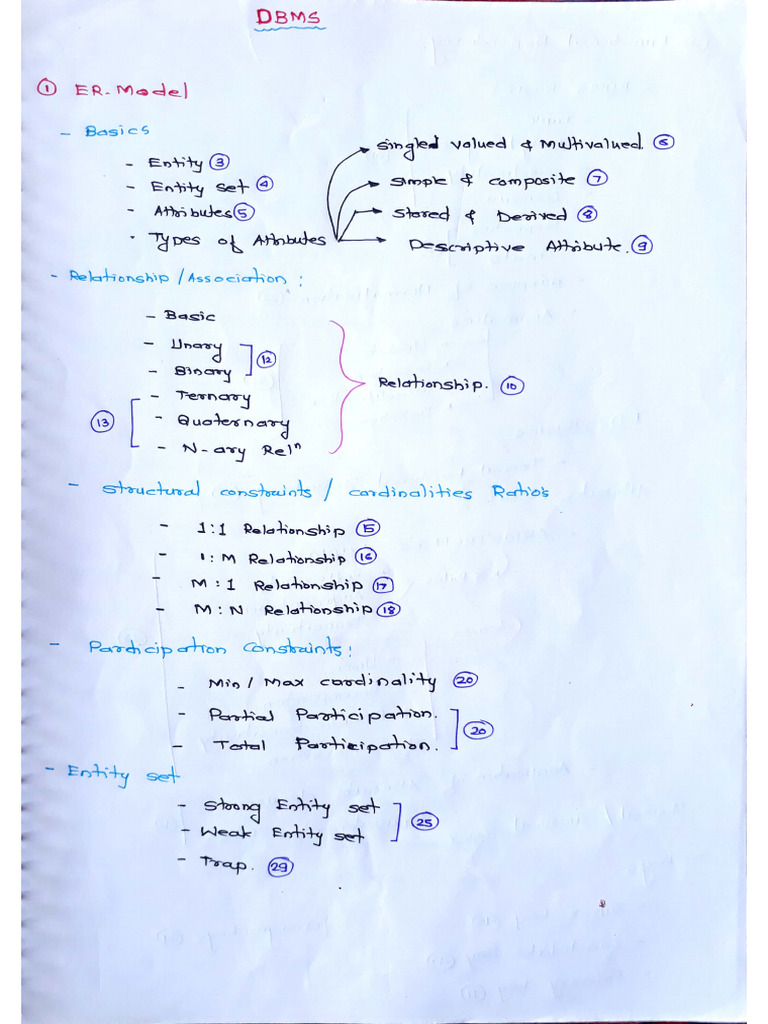 DBMS
① ER-Model
- Basics
- Entity ③
- Entity set ④
- Attributes ⑤
· Types of Attributes
Singled valued & Multivalued. ⑥
Simple & composite ⑦
Stored & Derived ⑧
Descriptive Attribute. ⑨
- Relationship / Association :
- Basic
- Unary
- Binary
⑫
- Ternary
- Quaternary
- N-ary Relⁿ
⑬
Relationship. ⑩
- Structural constraints / cardinalities Ratio's
- 1:1 Relationship ⑮
- 1:M Relationship ⑯
- M:1 Relationship ⑰
- M:N Relationship ⑱
- Participation Constraints :
- Min / Max cardinality ⑳
- Partial Participation.
- Total Participation.
⑳
- Entity set
- Strong Entity set
- Weak Entity set
㉕
- Trap. ㉙